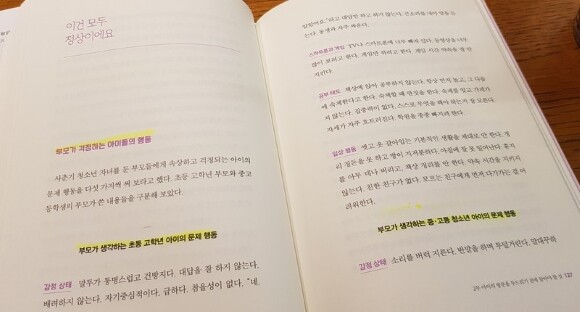 이건 모두
정상이에요
부모가 걱정하는 아이들의 행동
사춘기 청소년 자녀를 둔 부모들에게 속상하고 걱정되는 아이의
문제 행동을 다섯 가지씩 써 보라고 했다. 초등 고학년 부모와 중고
등학생의 부모가 쓴 내용들을 구분해 보았다.
부모가 생각하는 초등 고학년 아이의 문제 행동
감정 상태 말투가 퉁명스럽고 건방지다. 대답을 잘 하지 않는다.
배려하지 않는다. 자기중심적이다. 급하다. 참을성이 없다. "네.
다. 동생과 자주 싸운다.
스마트폰과 게임 TV나 스마트폰에 너무 빠져 있다. 동영상을 너무
많이 보려고 한다. 게임만 하려고 한다. 게임 시간 약속을 잘 안
지킨다.
공부 태도 책상에 앉아 공부하지 않는다. 항상 먼저 놀고, 그 다음
에 숙제한다고 한다. 숙제할 때 딴짓을 한다. 숙제를 잊고 가져가
지 않는다. 집중력이 없다. 스스로 무엇을 해야 하는지 잘 모른다.
자세가 자주 흐트러진다. 학원을 종종 빠지려 한다.
일상 행동 씻고 옷 갈아입는 기본적인 생활을 제대로 안 한다. 정
리 정돈을 못 하고 방이 지저분하다. 아침에 잘 못 일어난다. 휴지
를 아무 데나 버리고, 책상 정리를 안 한다. 약속 시간을 지키지
않는다. 친한 친구가 없다. 모르는 친구에게 먼저 다가가는 걸 어
려워한다.
부모가 생각하는 중·고등 청소년 아이의 문제 행동
감정 상태 소리를 버럭 지른다. 반말을 하며 투덜거린다. 말대꾸하
127